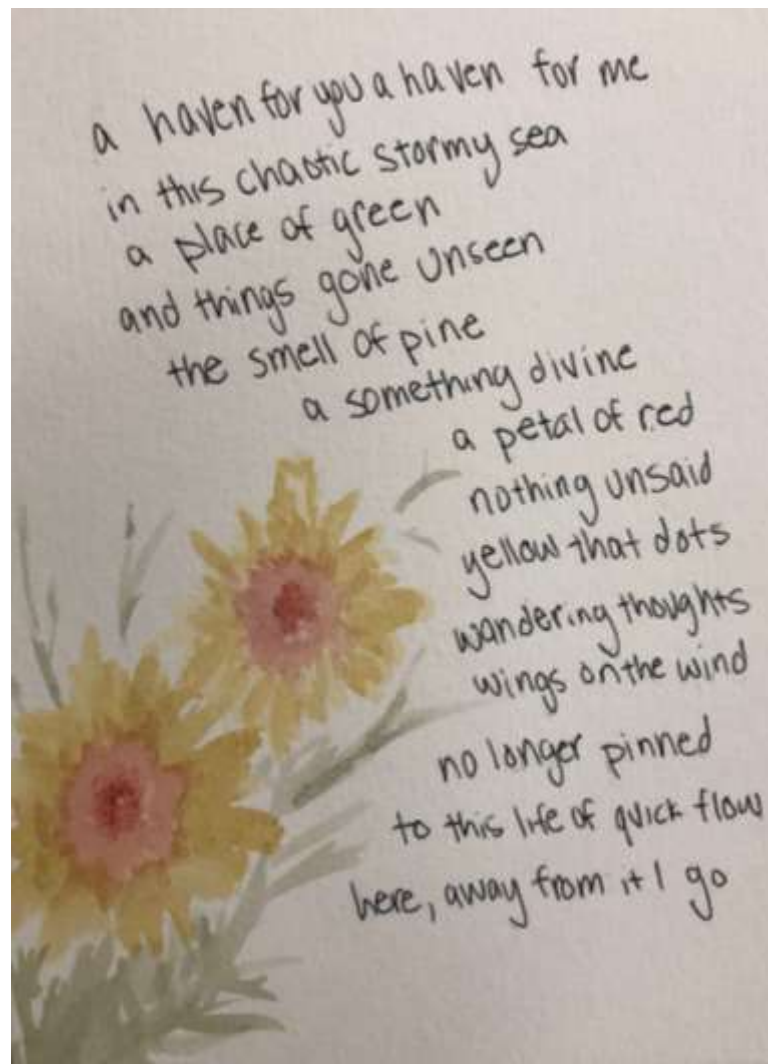 a haven for you a haven for me
in this chaotic stormy sea
a place of green
and things gone unseen
the smell of pine
a something divine
a petal of red
nothing unsaid
yellow that dots
wandering thoughts
wings on the wind
no longer pinned
to this life of quick flow
here, away from it I go